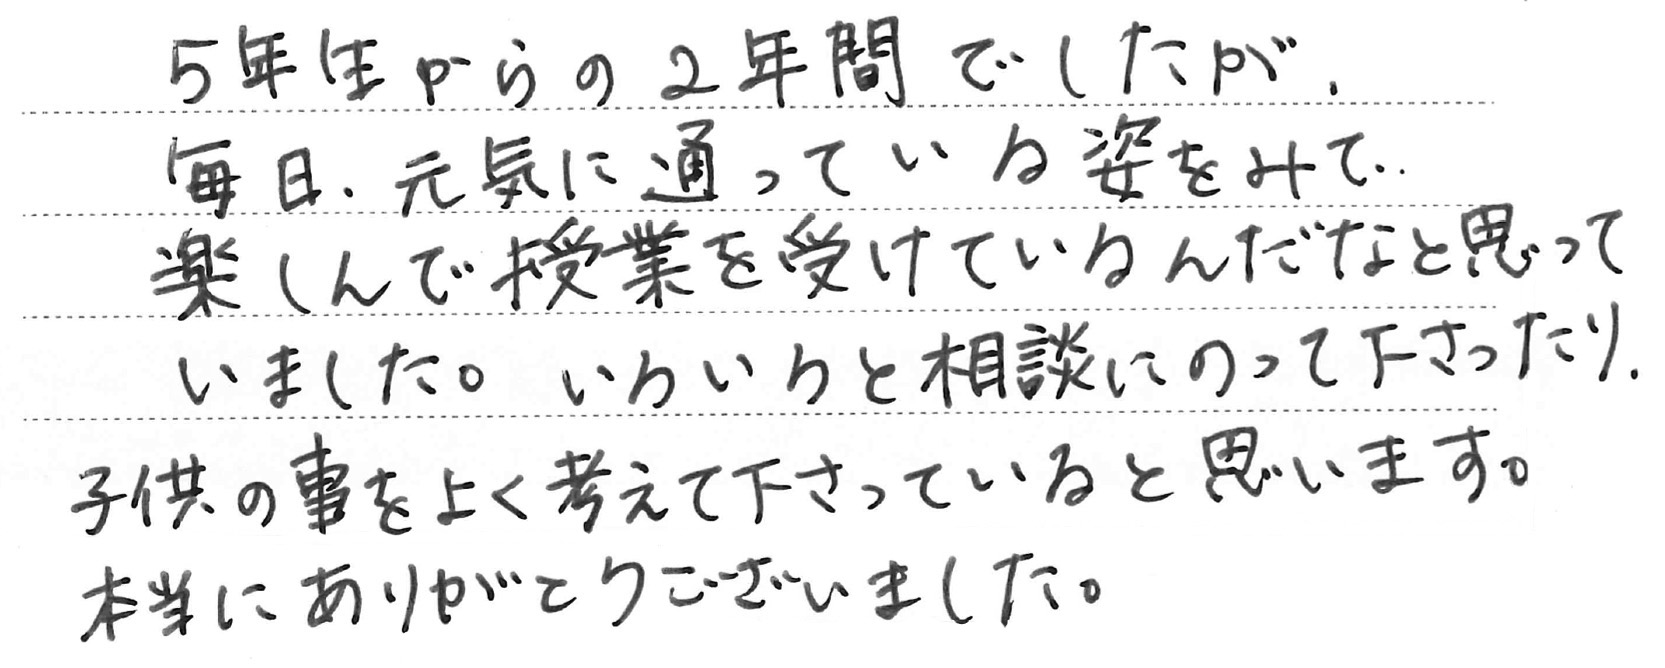 5年生からの2年間でしたが、
毎日、元気に通っている姿をみて、
楽しんで授業を受けているんだなと思って
いました。いろいろと相談にのって下さったり、
子供の事をよく考えて下さっていると思います。
本当にありがとうございました。